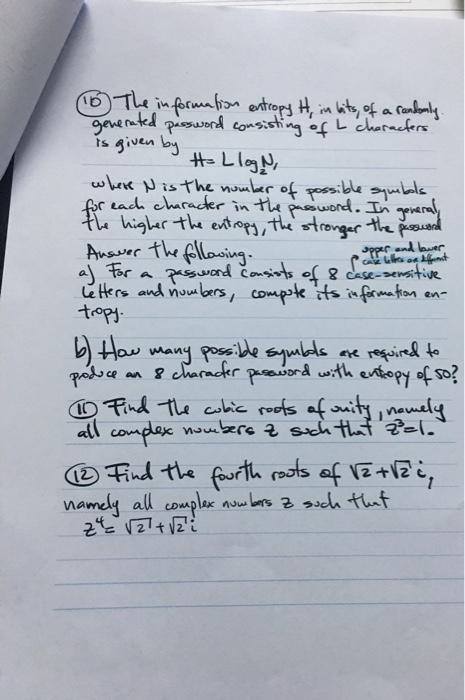 ⑩ The information entropy H, in bits, of a randomly
generated password consisting of L characters
is given by
H = L log₂N,
where N is the number of possible symbols
for each character in the password. In general,
the higher the entropy, the stronger the password
Answer the following.
upper and lower
case letters are different
a) For a password consists of 8 case-sensitive
letters and numbers, compute its information en-
tropy.
b) How many possible symbols are required to
produce an 8 character password with entropy of 50?
⑪ Find the cubic roots of unity, namely
all complex numbers z such that z³=1.
⑫ Find the fourth roots of √2+√2 i,
namely all complex numbers z such that
z⁴= √2+√2 i